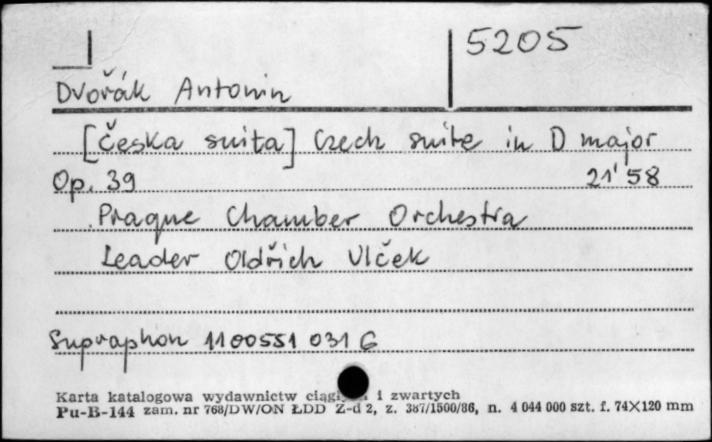 5205
Dvořák Antonin
[Česka suita] Czech suite in D major
Op. 39 21'58
Prague Chamber Orchestra
Leader Oldřich Vlček
Supraphon 1100551 031 G
Karta katalogowa wydawnictw i zwartych
Pu-B-144 zam. nr 768/DW/ON ŁDD Z-d 2, z. 387/1500/86, n. 4 044 000 szt. f. 74X120 mm